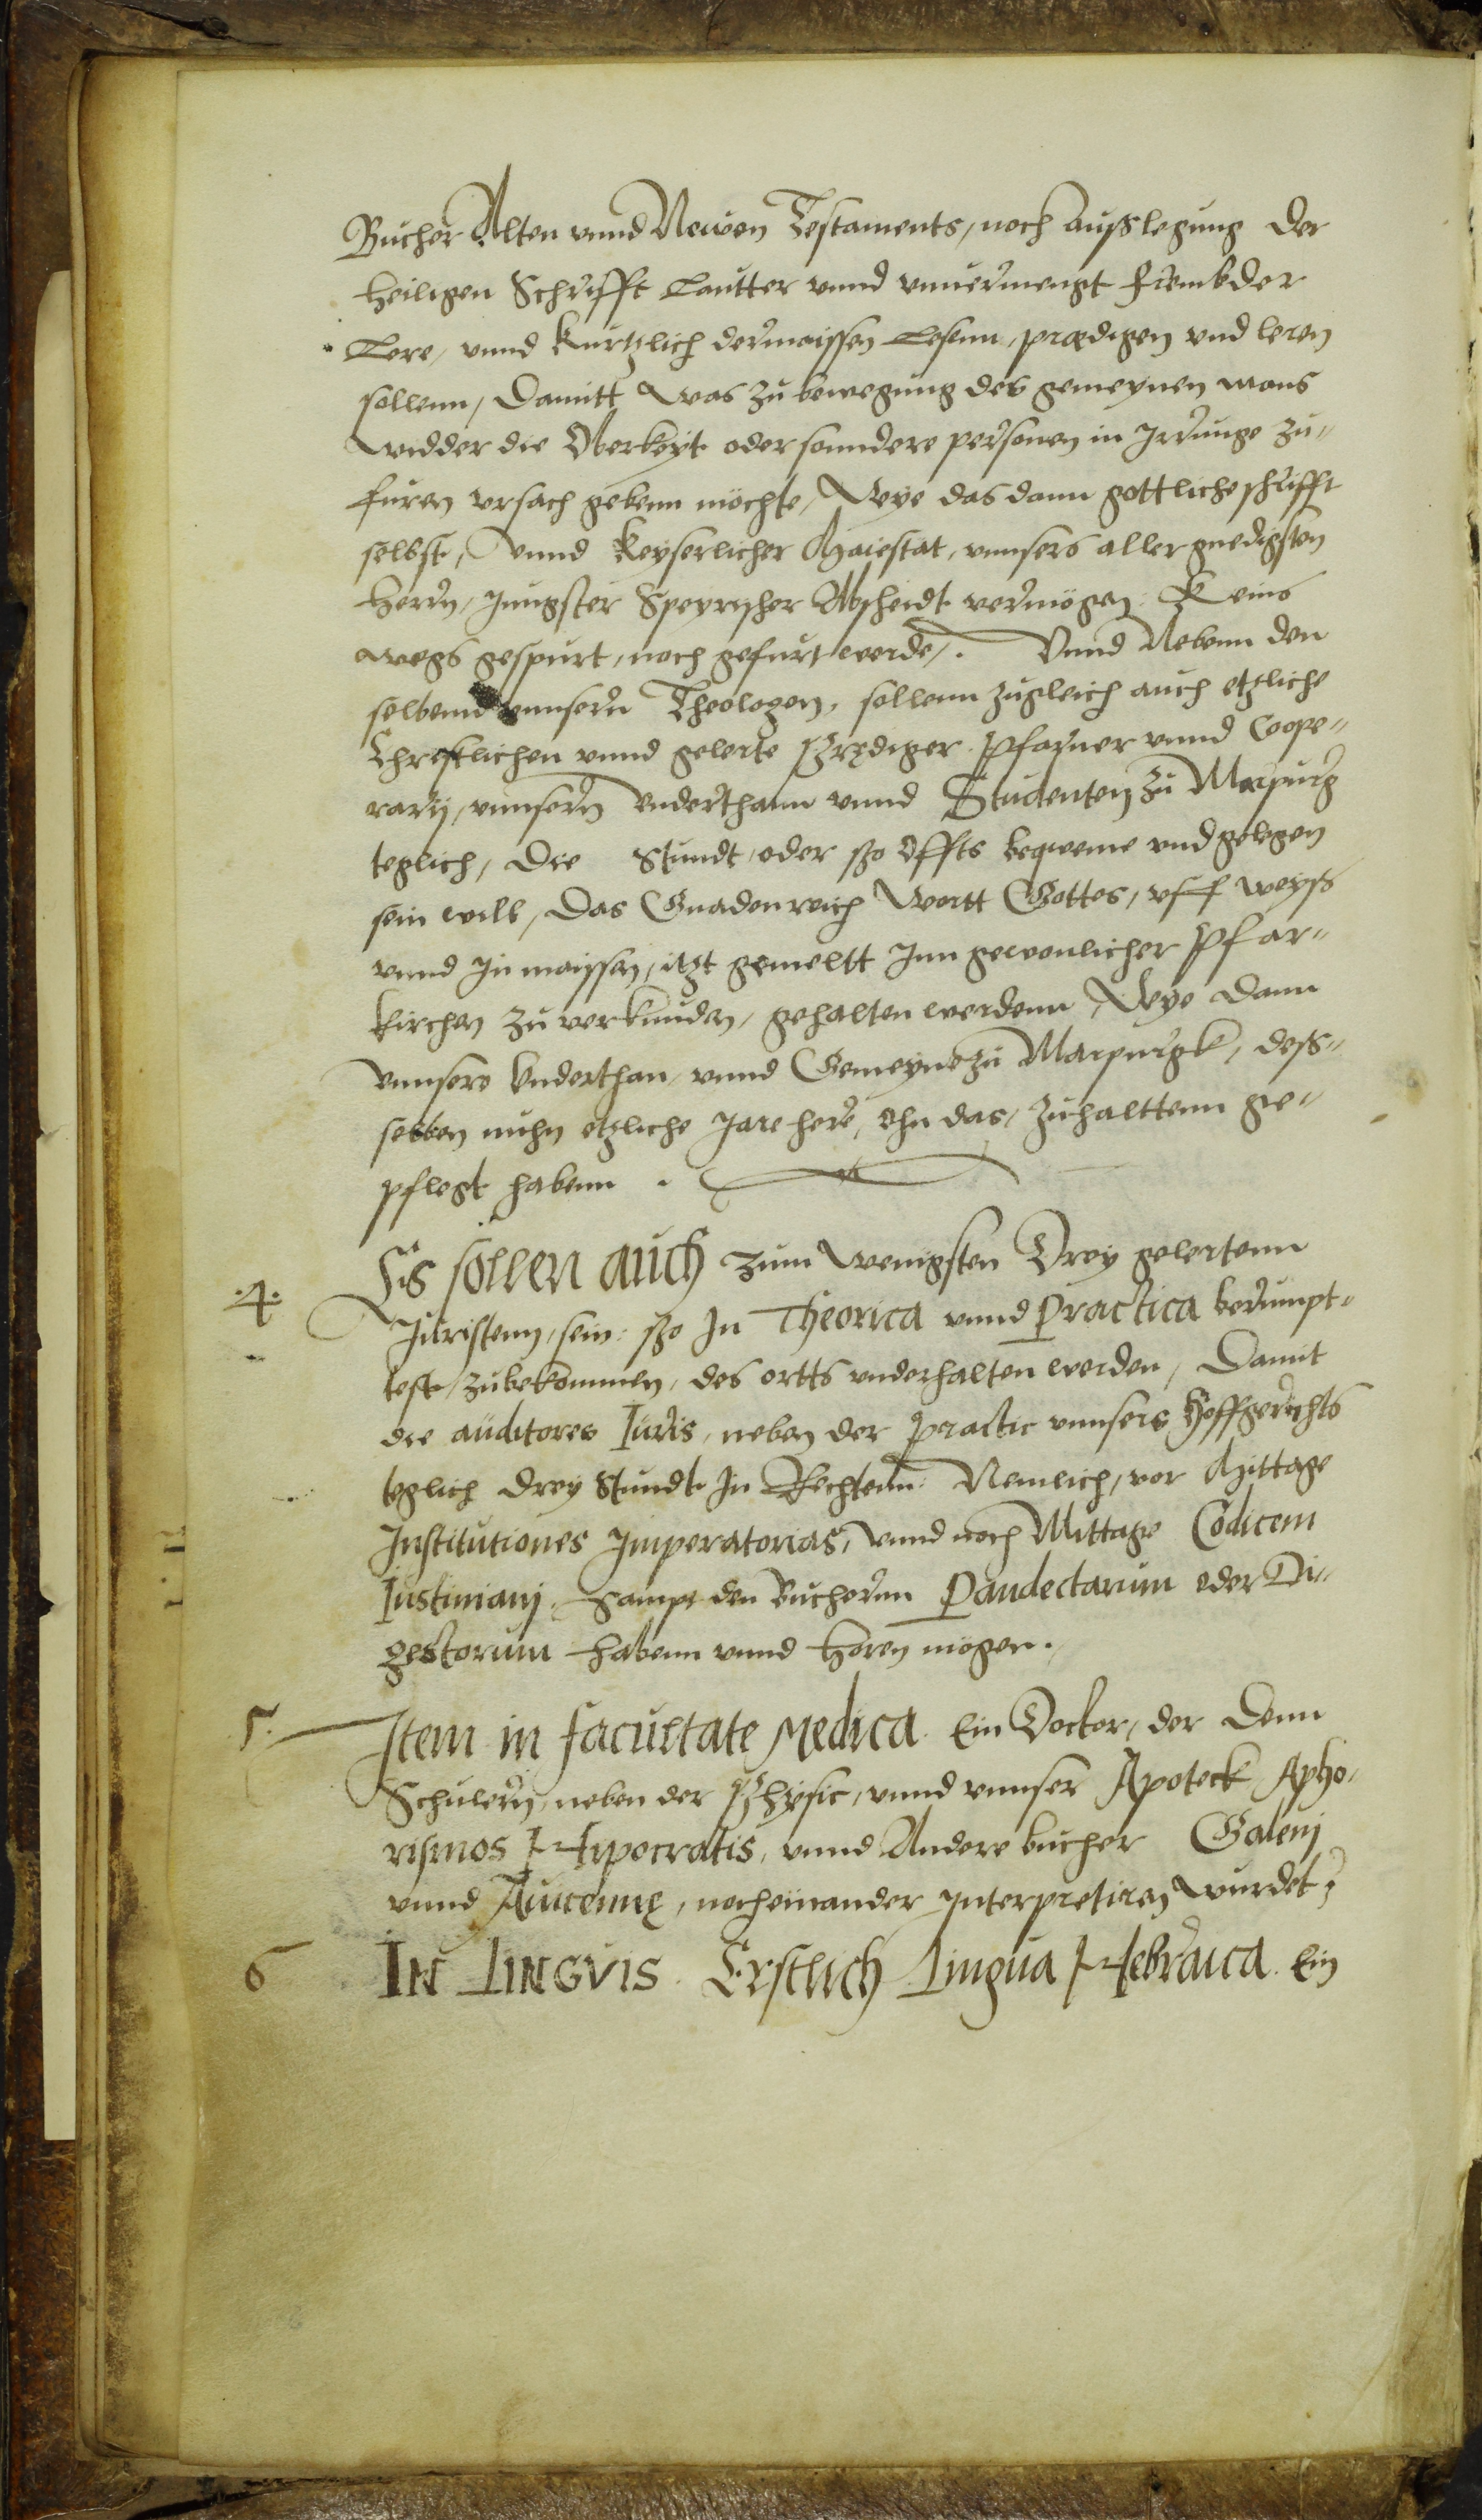 Bucher Alten vnnd Newen Testaments, noch außlegung der
heiligen Schrifft lautter vnnd vnuermengt frembder
Lere, vnnd kurtzlich dermaissen lesenn, prædigen vnd leren
sollenn, Damitt was zu bewegung des gemeynen mans
widder die Oberkeyt oder sonndere personen in Irrunge zu-
furen vrsach gebenn möchte, Wye das dann gottliche schrifft
selbst, Vnnd Keyserlicher Maiestat, vnnsers aller gnedigsten
Herrn, Jungster Speyrischer Abscheidt vermögen. Keins
wegs gespurt, noch gefurt werde. Vnnd Nebenn den
selbenn vnnsern Theologen, sollenn zugleich auch etzliche
Christlichen vnnd gelerte Prediger. Pfarner vnnd Coope-
rarij, vnnsern vnderthann vnnd Studenten zu Marpurg
teglich, Die Stundt, oder sso offts beqweme vnd gelegen
sein will, Das Gnadenreich Wortt Gottes, vff weyß
vnnd in maissen, itzt gemeltt Inn gewonlicher Pfar-
kirchen zu verkunden, gehalten werdenn, Wye dann
vnnsere vnderthan, vnnd Gemeynde zu Marpurgk, dess-
selben nuhn etzliche Jare here, ohn das, zuhalttenn ge-
pflegt habenn.
.4. Es sollen auch zum wenigsten Drey gelertenn
Juristenn, sein: sso In Theorica vnnd Practica berumpt-
test, zubekommen, des ortts vnderhalten werden, Damit
die auditores Iuris, neben der practic vnnsers Hoffgerichts
teglich drey Stundt In Rechtenn: Nemlich, vor Mittage
Institutiones Imperatorias, vnnd noch Mittage Codicem
Iustiniani, sampt den Buchernn Pandectarum oder Di-
gestorum habenn vnnd horen mögen.
5. Item in facultate Medica. Ein Doctor, der Denn
Schulern, neben der Physic, vnnd vnnser Apoteck Apho-
rismos Hypocratis, vnnd Andere bucher Galenj
vnnd Auicennę, nocheinander Interpretiren wurdet.
6 IN LINGVIS. Erstlich Lingua Hebraica. Ein